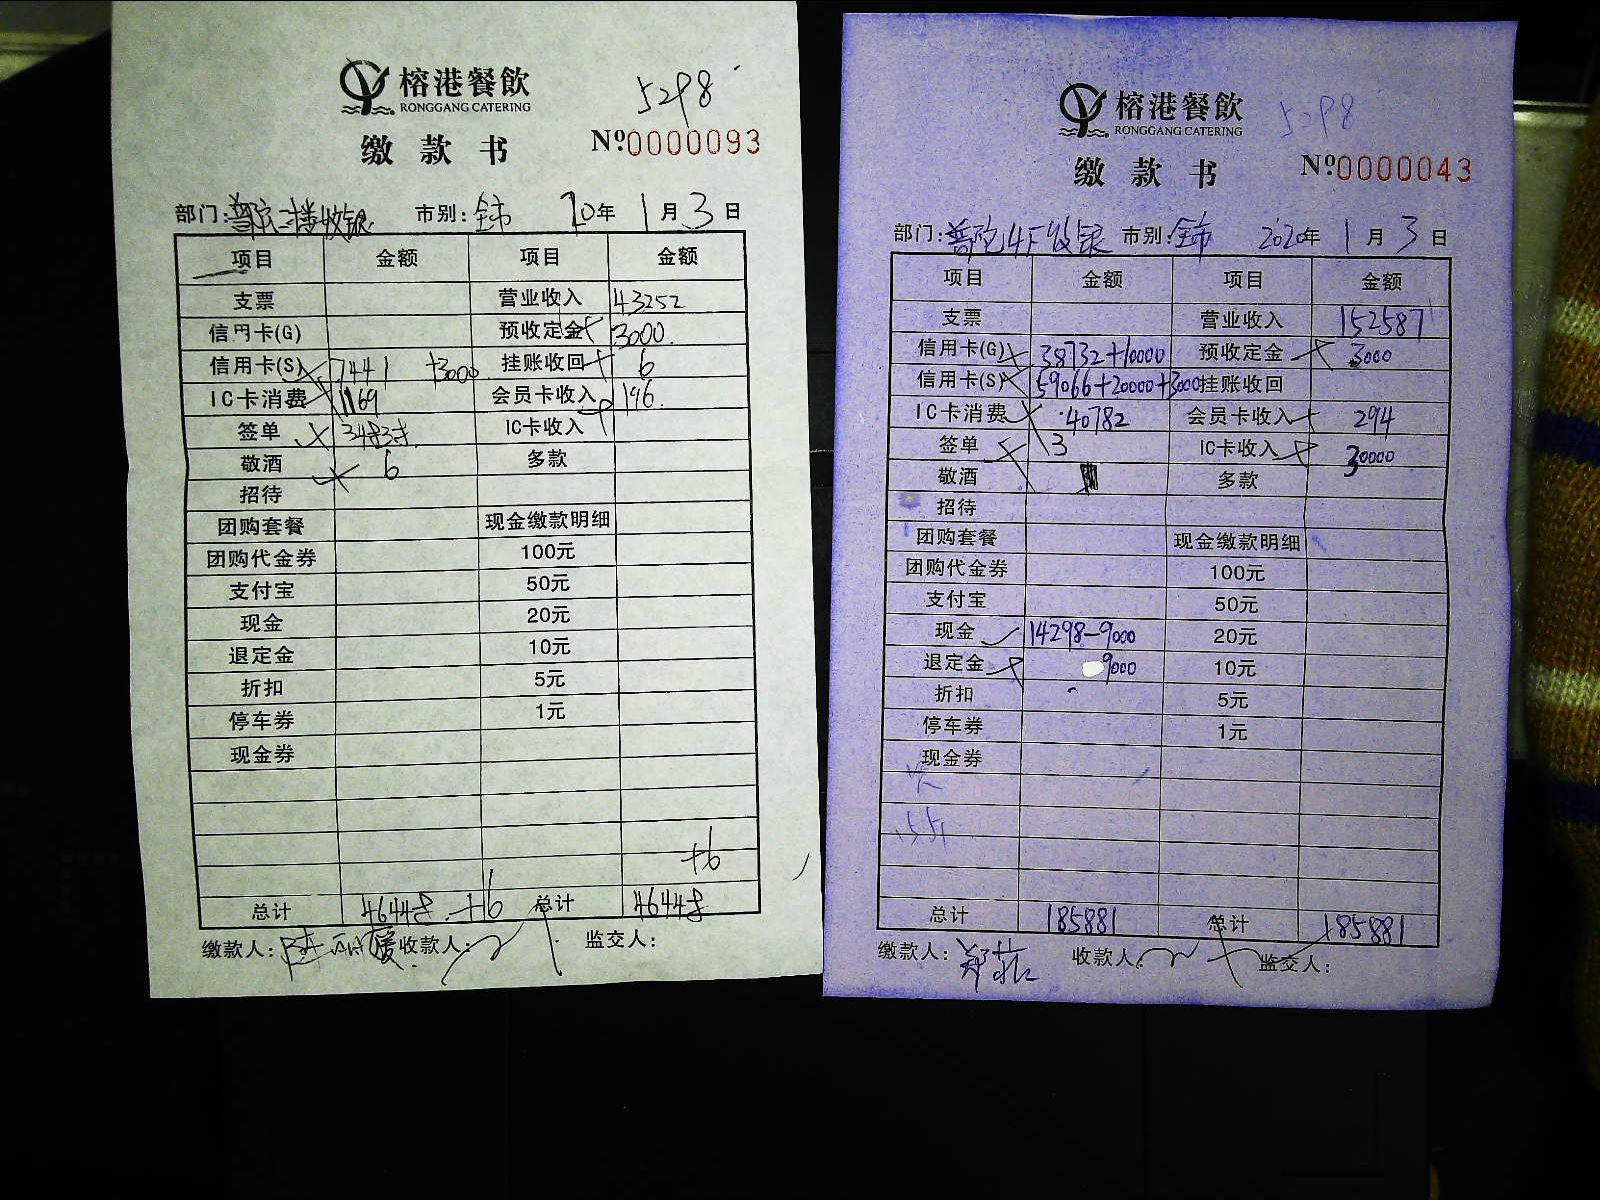 榕港餐飲
RONGGANG CATERING
5298
缴款书
Nº0000093
部门:普陀二楼收银 市别:全市 20年1月3日
项目 金额 项目 金额
支票 营业收入 43252
信用卡(G) 预收定金 3000.
信用卡(S) 7441 +3000 挂账收回 6
IC卡消费 1169 会员卡收入 196.
签单 34838. IC卡收入
敬酒 6 多款
招待
团购套餐 现金缴款明细
团购代金券 100元
支付宝 50元
现金 20元
退定金 10元
折扣 5元
停车券 1元
现金券
+6
总计 46448 +6 总计 46448
缴款人: 收款人: 监交人:
榕港餐飲
RONGGANG CATERING
5298
缴款书
Nº0000043
部门:普陀4F收银 市别:全市 2020年1月3日
项目 金额 项目 金额
支票 营业收入 152587
信用卡(G) 38732+10000 预收定金 3000
信用卡(S) 59066+20000+3000 挂账收回
IC卡消费 40782 会员卡收入 294
签单 3 IC卡收入 30000
敬酒 多款
招待
团购套餐 现金缴款明细
团购代金券 100元
支付宝 50元
现金 14298-9000 20元
退定金 9000 10元
折扣 5元
停车券 1元
现金券
总计 185881 总计 185881
缴款人: 收款人: 监交人: